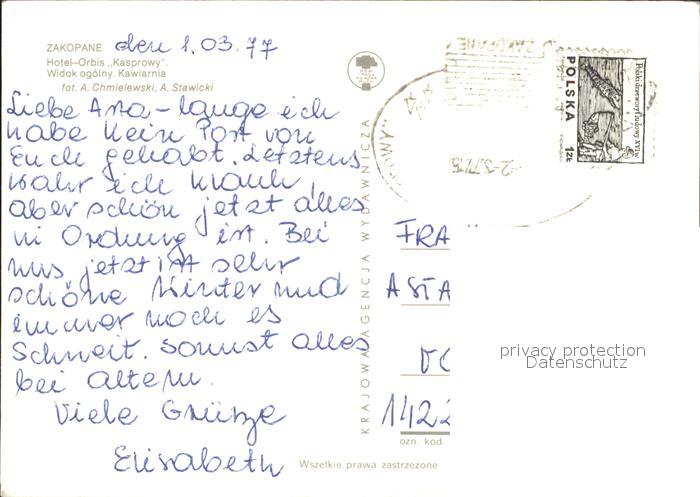 ZAKOPANE den 1.03.77
Hotel-Orbis „Kasprowy".
Widok ogólny. Kawiarnia
fot. A. Chmielewski, A. Stawicki
Liebe Ana - lange ich
habe kein Post von
Euch gehabt. Letztens
wahr ich krank,
aber schön jetzt alles
in Ordnung ist. Bei
uns jetzt ist sehr
schöne Winter und
immer noch es
Schneit. Sonust alles
bei altem.
Viele Grüsze
Elisabeth
KRAJOWA AGENCJA WYDAWNICZA
ZAKOPANE
-2-3.77.15
POLSKA
Polski drzeworyt ludowy XVI w.
1 ZŁ
FRA
ASTA
1422
ozn. kod.
Wszelkie prawa zastrzeżone
privacy protection
Datenschutz